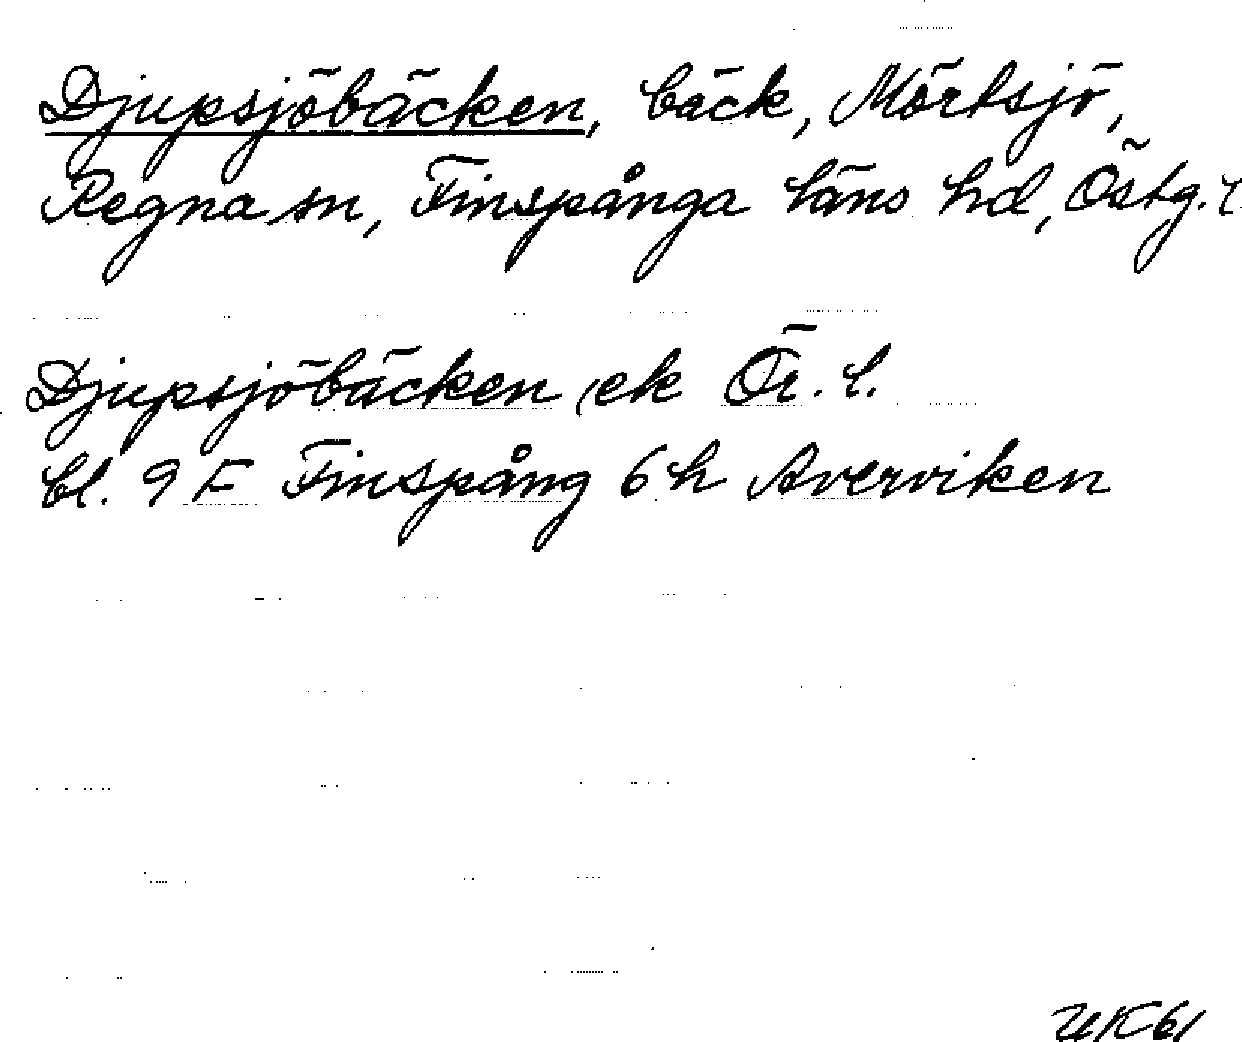 Djupsjöbäcken, bäck, Mörtsjö,
Regna sn, Finspånga läns hd, Östg. l
Djupsjöbäcken, ek Ör. l.
bl. 9 F Finspång 6 h Averviken
UK61